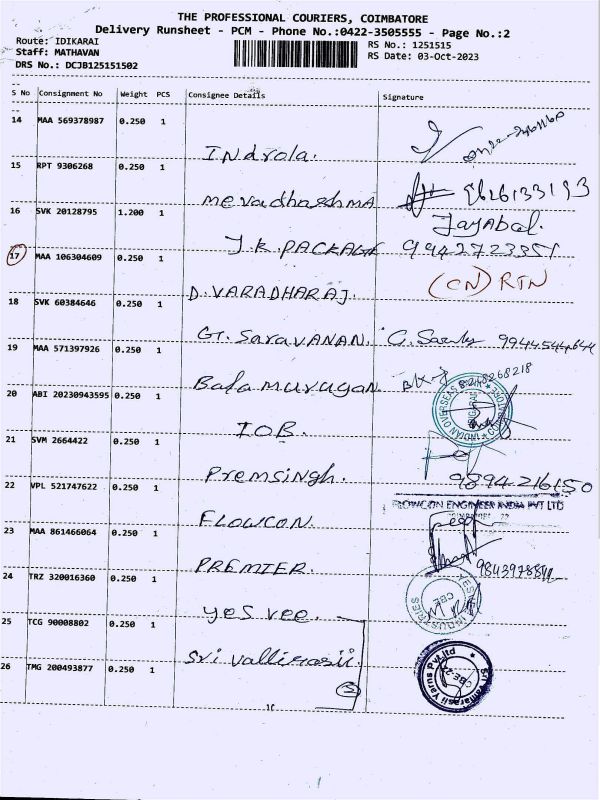 THE PROFESSIONAL COURIERS, COIMBATORE
Delivery Runsheet - PCM - Phone No.:0422-3505555 - Page No.:2
Route: IDIKARAI
RS No.: 1251515
Staff: MATHAVAN
RS Date: 03-Oct-2023
DRS No.: DCJB125151502
S No Consignment No Weight PCS Consignee Details Signature
14 MAA 569378987 0.250 1
Indrola.
15 RPT 9306268 0.250 1
mevadhashmA 9626133193
16 SVK 20128795 1.200 1
Jayabal.
J.K. PACKAGE 9942723351
17 MAA 106304609 0.250 1
(CN) RTN
D. VARADHARAJ.
18 SVK 60384646 0.250 1
GT. SaravANAN. 9944544644
19 MAA 571397926 0.250 1
Bala murugan 8248268218
20 ABI 20230943595 0.250 1
INDIAN OVERSEAS BANK COIMBATORE
IOB.
21 SVM 2664422 0.250 1
Premsingh. 9894216150
22 VPL 521747622 0.250 1
FLOWCON ENGINEER INDIA PVT LTD
FLOWCON.
23 MAA 861466064 0.250 1
PREMIER.
24 TRZ 320016360 0.250 1
INDUSTRIES
CBE
yes vee.
25 TCG 90008802 0.250 1
Sri vallirasii.
26 TMG 200493877 0.250 1